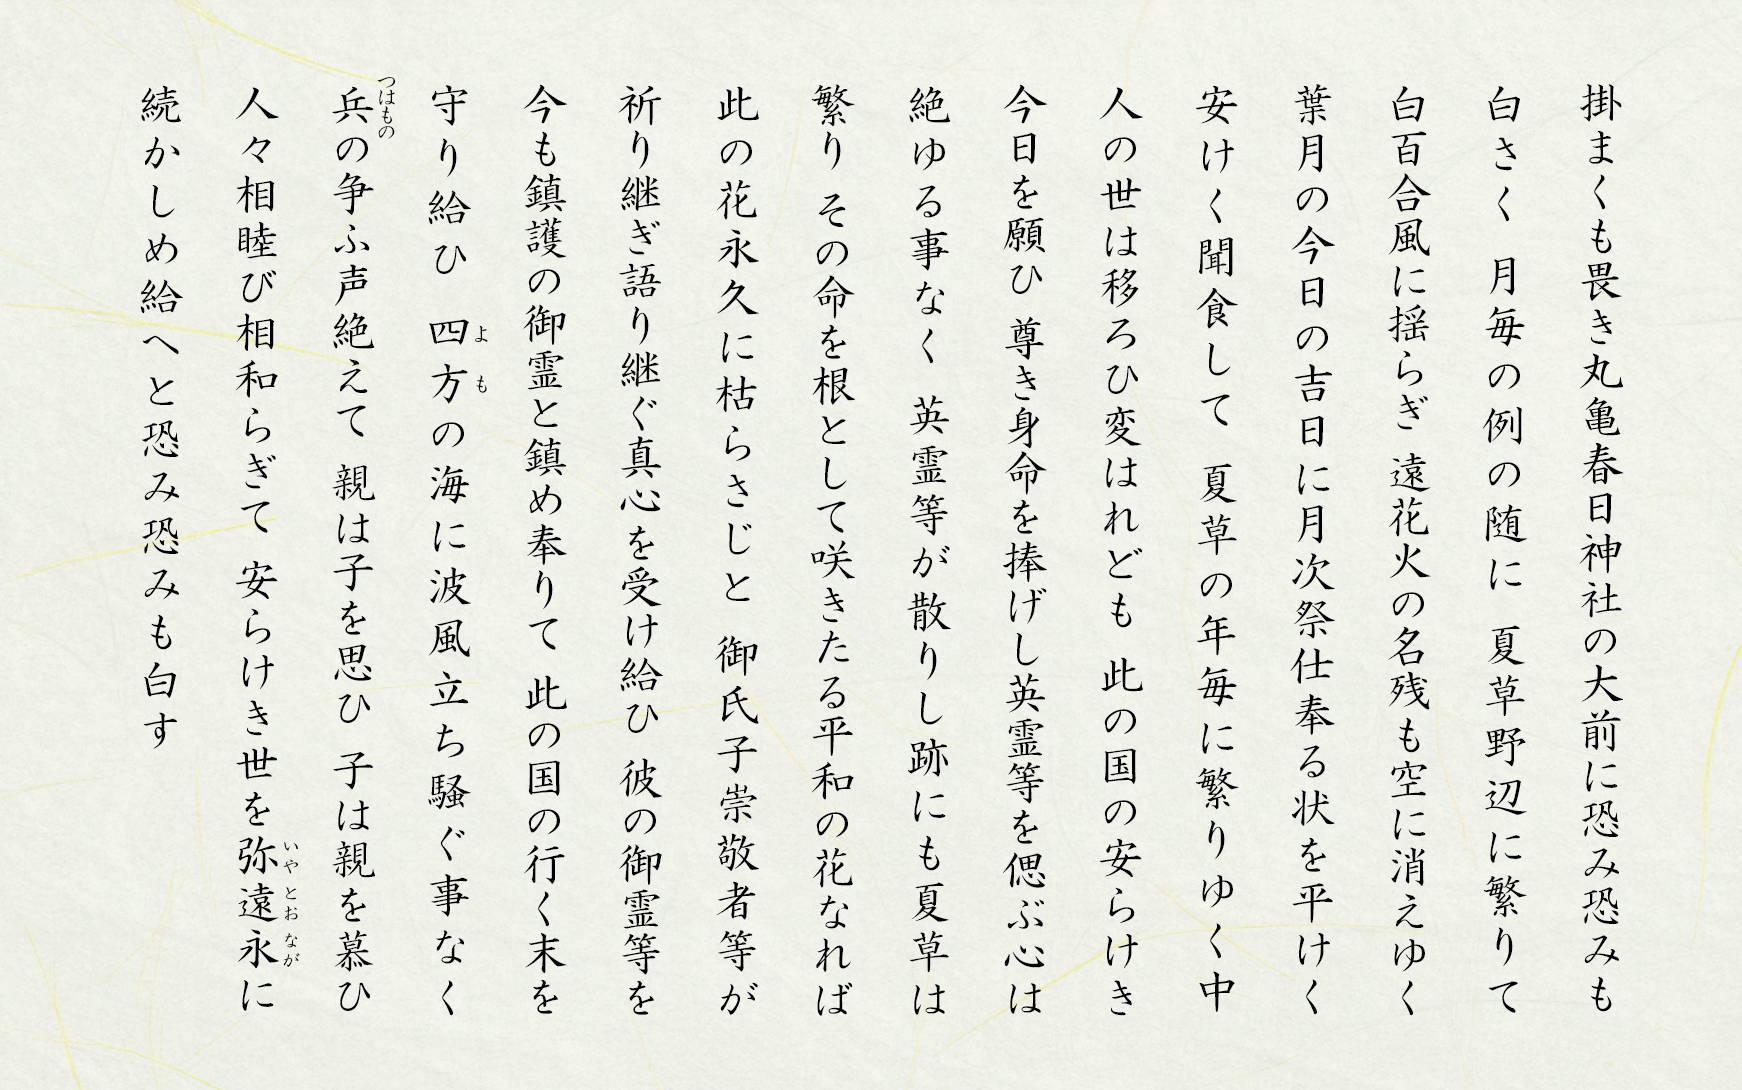 掛まくも畏き丸亀春日神社の大前に恐み恐みも
白さく 月毎の例の随に 夏草野辺に繁りて
白百合風に揺らぎ 遠花火の名残も空に消えゆく
葉月の今日の吉日に月次祭仕奉る状を平けく
安けく聞食して 夏草の年毎に繁りゆく中
人の世は移ろひ変はれども 此の国の安らけき
今日を願ひ 尊き身命を捧げし英霊等を偲ぶ心は
絶ゆる事なく 英霊等が散りし跡にも夏草は
繁り その命を根として咲きたる平和の花なれば
此の花永久に枯らさじと 御氏子崇敬者等が
祈り継ぎ語り継ぐ真心を受け給ひ 彼の御霊等を
今も鎮護の御霊と鎮め奉りて 此の国の行く末を
守り給ひ 四方の海に波風立ち騒ぐ事なく
よも
兵の争ふ声絶えて 親は子を思ひ 子は親を慕ひ
つはもの
人々相睦び相和らぎて 安らけき世を弥遠永に
いやとおなが
続かしめ給へと恐み恐みも白す